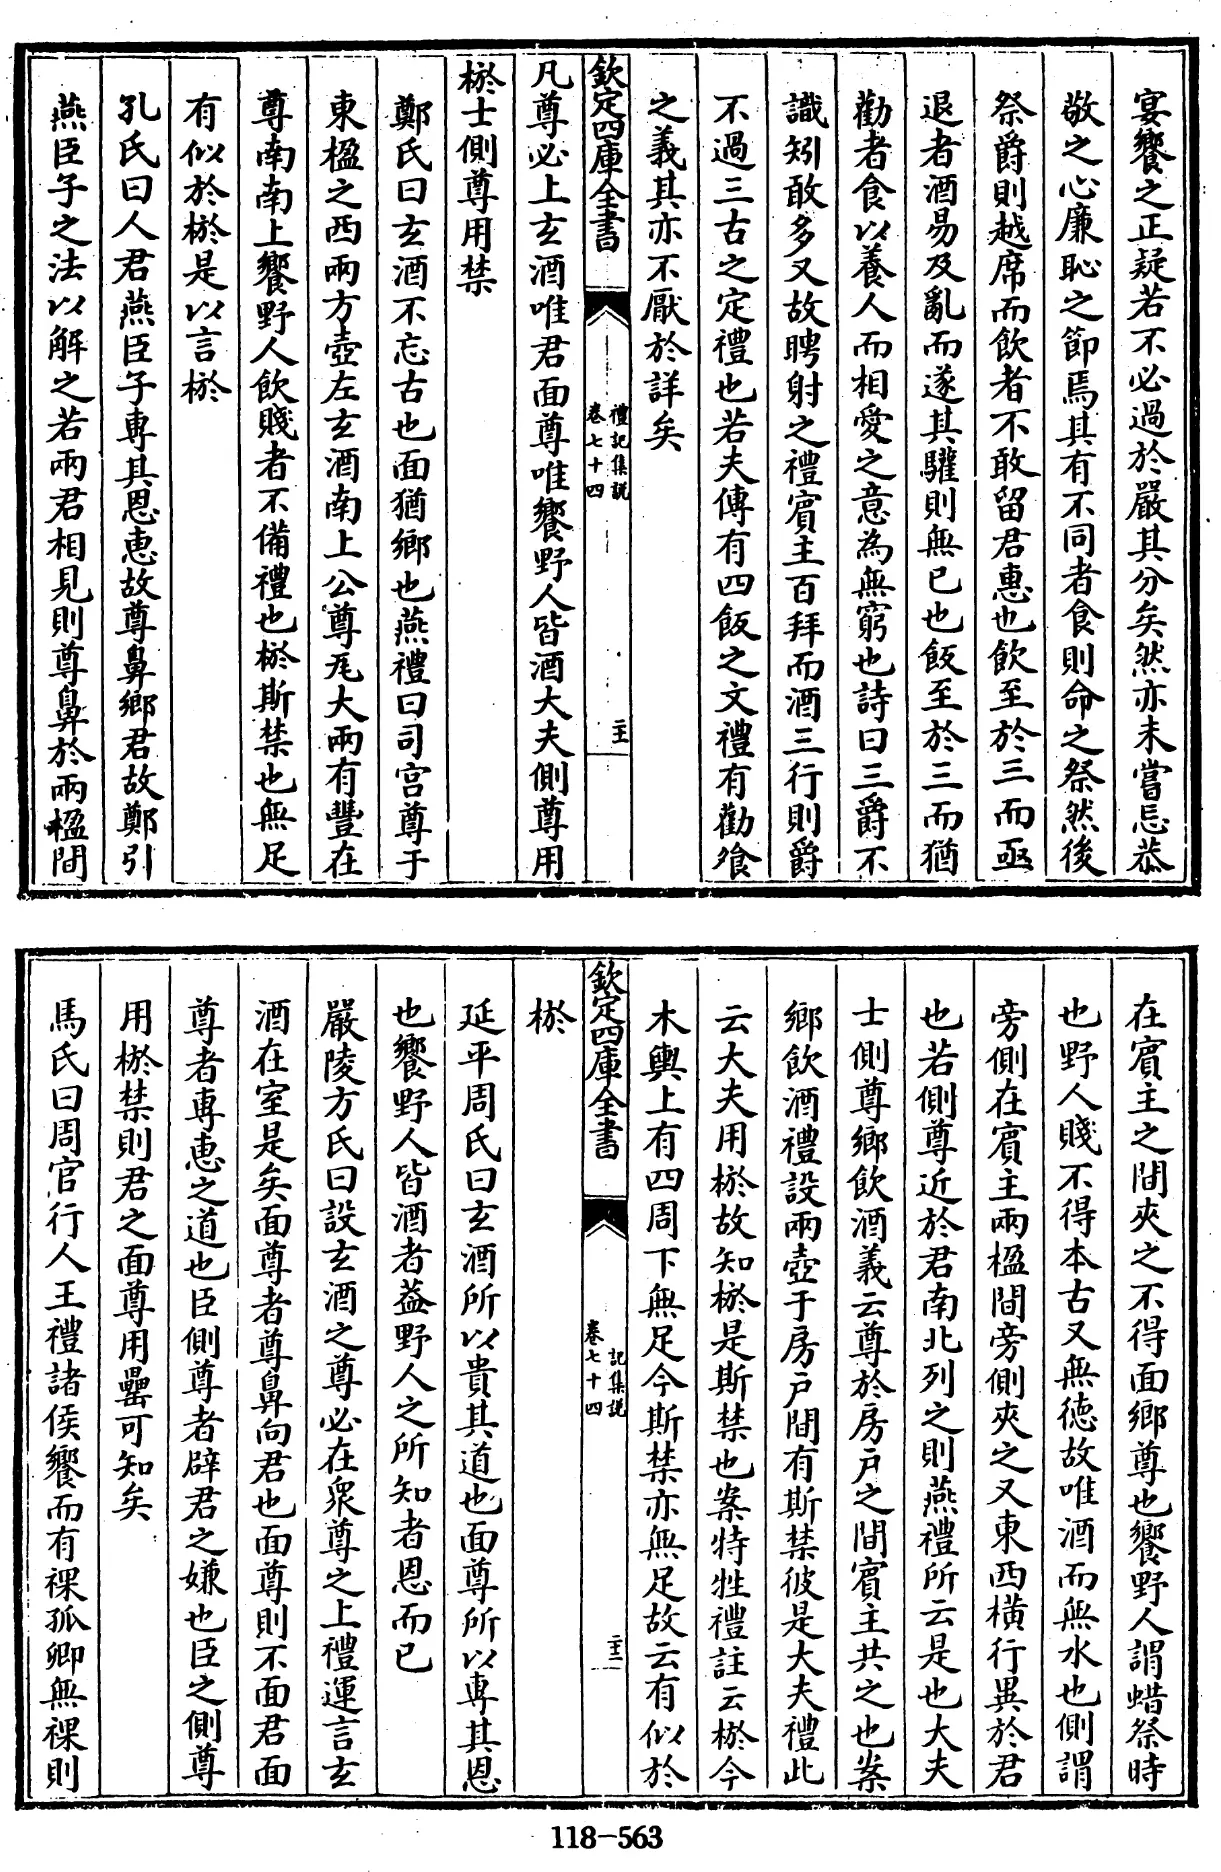 宴饗之正疑若不必過於嚴其分矣然亦未嘗忌恭
敬之心廉恥之節焉其有不同者食則命之祭然後
祭爵則越席而飲者不敢留君惠也飲至於三而亟
退者酒易及亂而遂其驩則無已也飯至於三而猶
勸者食以養人而相愛之意為無窮也詩曰三爵不
識矧敢多又故聘射之禮賓主百拜而酒三行則爵
不過三古之定禮也若夫傳有四飯之文禮有勸飧
之義其亦不厭於詳矣
欽定四庫全書
禮記集說
卷七十四
凡尊必上玄酒唯君面尊唯饗野人皆酒大夫側尊用
棜士側尊用禁
鄭氏曰玄酒不忘古也面猶鄉也燕禮曰司宮尊于
東楹之西兩方壺左玄酒南上公尊瓦大兩有豐在
尊南南上饗野人飲賤者不備禮也棜斯禁也無足
有似於棜是以言棜
孔氏曰人君燕臣子專其恩惠故尊鼻鄉君故鄭引
燕臣子之法以解之若兩君相見則尊鼻於兩楹間
在賓主之間夾之不得面鄉尊也饗野人謂蜡祭時
也野人賤不得本古又無德故唯酒而無水也側謂
旁側在賓主兩楹間旁側夾之又東西橫行異於君
也若側尊近於君南北列之則燕禮所云是也大夫
士側尊鄉飲酒義云尊於房戶之間賓主共之也案
鄉飲酒禮設兩壺于房戶間有斯禁彼是大夫禮此
云大夫用棜故知棜是斯禁也案特牲禮註云棜今
木輿上有四周下無足今斯禁亦無足故云有似於
欽定四庫全書
記集說
卷七十四
棜
延平周氏曰玄酒所以貴其道也面尊所以專其恩
也饗野人皆酒者蓋野人之所知者恩而已
嚴陵方氏曰設玄酒之尊必在衆尊之上禮運言玄
酒在室是矣面尊者尊鼻向君也面尊則不面君面
尊者專惠之道也臣側尊者辟君之嫌也臣之側尊
用棜禁則君之面尊用罍可知矣
馬氏曰周官行人王禮諸侯饗而有祼孤卿無祼則
118-563